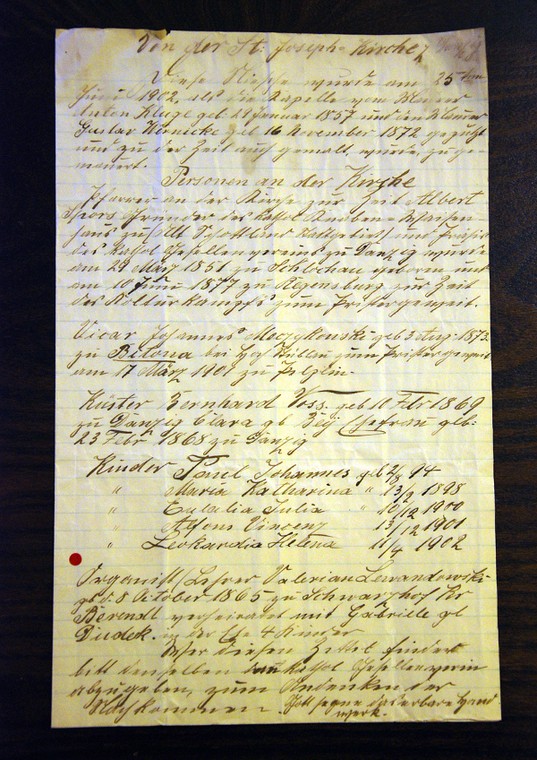 Von der St: Joseph-Kirche
Diese Nische wurde am 25 ten
Juni 1902, als die Kapelle vom Maurer
Anton Kluge geb 29 Januar 1857 und den Maurer
Gustav Hönicke geb 16 November 1872 geputzt
und zu der Zeit auch gemalt, wurde, zuge-
mauert.
Personen an der Kirche
Pfarrer an der Kirche zur Zeit Albert
Spors Gründer des kathol Knaben-Waisen-
haus zu Alt Schottland und Präses
des kathol Gesellenvereins zu Danzig wurde
am 29 März 1851 zu Schlochau geboren und
am 10 Juni 1877 zu Regensburg zur Zeit
des Kulturkampfs zum Priester geweit.
Vicar Johannes geb 3 Aug: 1873
zu bei zum Priester geweit
am 17 März 1901 zu Pelplin.
Küster Bernhard Voss. geb 11 Febr 1869
zu Danzig Clara gb geb:
23 Febr 1868 zu Danzig
Kinder Paul Johannes geb 94
" Maria Katharina " 13/2 1898
" Eulalia Julia " 10/12 1900
" Alfons Vincenz 13/12 1901
" Leokardia Helena 11/4 1902
Organist/Lehrer Valerian Lewandowski
gb d. 8 October 1865 zu Schwarzhof Kr
Berendt verheiratet mit Gabriele gb
Dudek. in der Ehe 4 Kinder
Wer diesen Zettel findet
bitt denselben kathol Gesellenverein
abzugeben, zum Andenken der
Nachkommen - Gott segne das erbare Hand
werk.